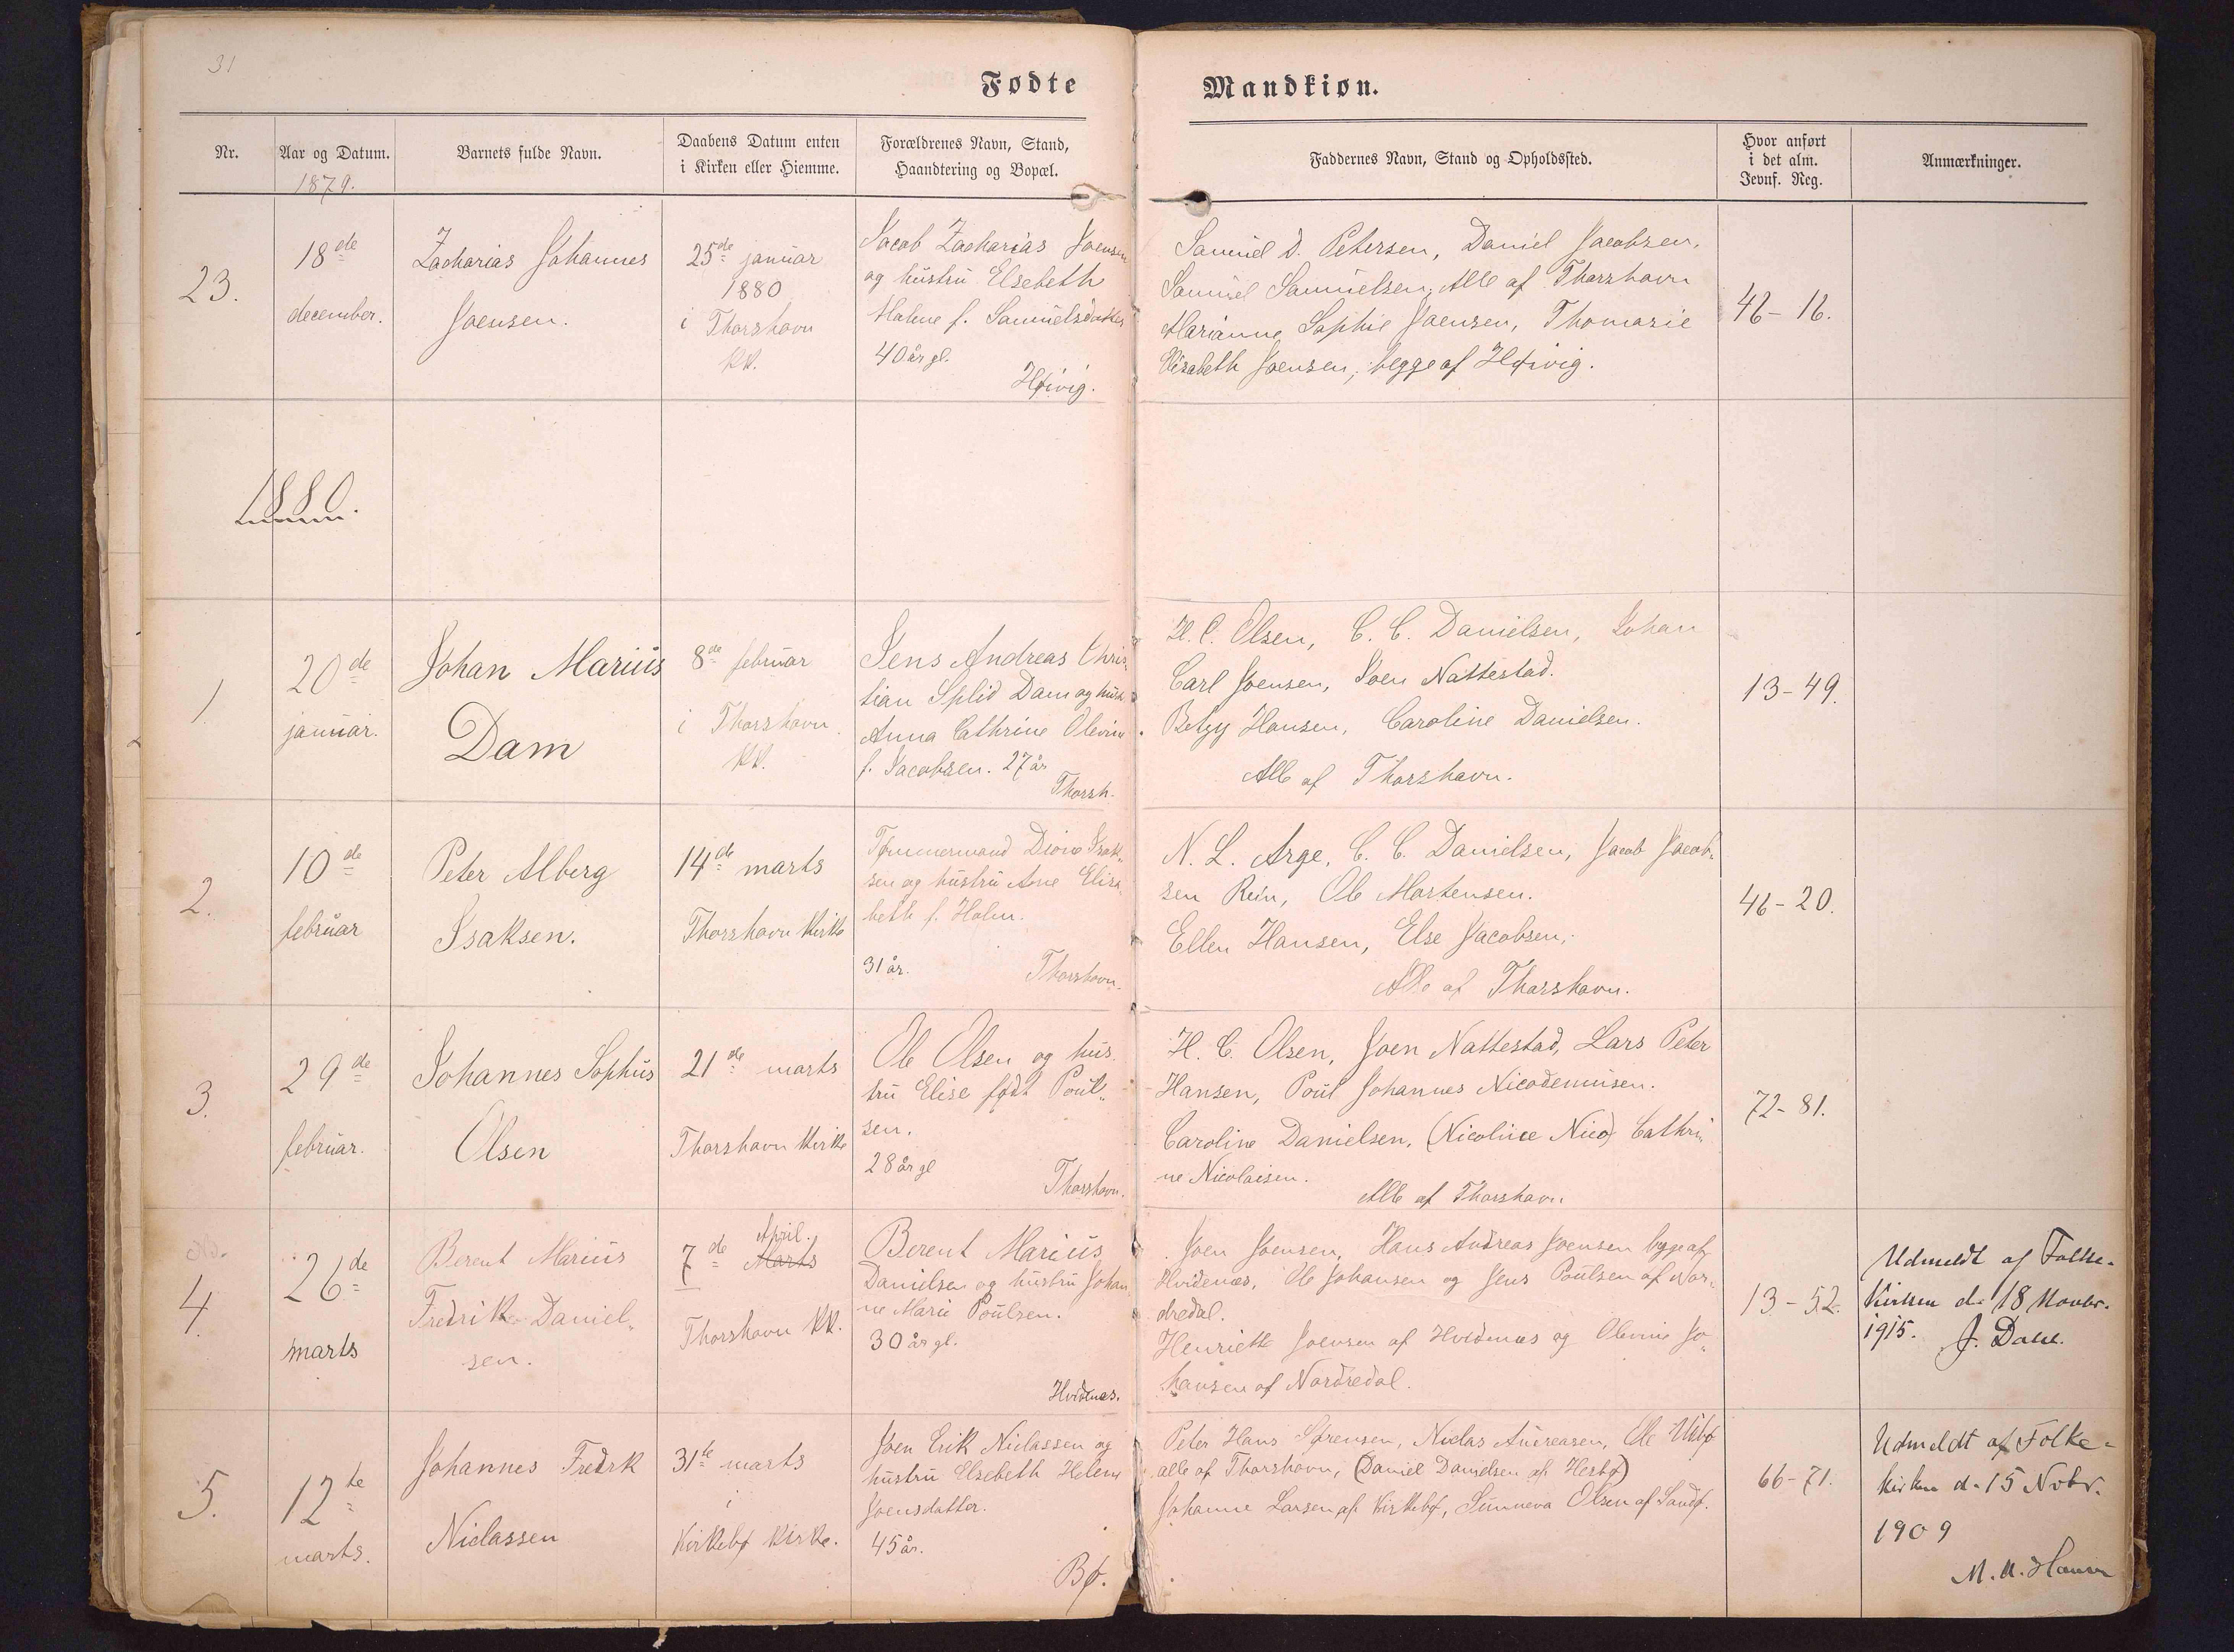 31
Fødte
Mandkiøn.
Nr.
Aar og Datum.
1879.
Barnets fulde Navn.
Daabens Datum enten
i Kirken eller Hiemme.
Forældrenes Navn, Stand,
Haandtering og Bopæl.
Faddernes Navn, Stand og Opholdssted.
Hvor anført
i det alm.
Jevnf. Reg.
Anmærkninger.
23.
18de
december.
Zacharias Johannes
Joensen.
25de januar
1880
i Thorshavn
KK.
Jacob Zacharias Joensen
og hustru Elsebeth
Malene f. Samuelsdatter
40 år gl.
Høivig.
Samuel D. Petersen, Daniel Jacobsen,
Samuel Samuelsen, Alle af Thorshavn
Marianne Sophie Joensen, Thomasie
Elisabeth Joensen, begge af Høivig.
42-16.
1880.
1
20de
januar.
Johan Marius
Dam
8de februar
i Thorshavn
KK.
Jens Andreas Chris-
tian Splid Dam og hustr
Anna Cathrine Olevine
f. Jacobsen. 27 år
Thorsh.
H. C. Olsen, C. C. Danielsen, Johan
Carl Joensen, Joen Nattestad.
Betzy Hansen, Caroline Danielsen.
Alle af Thorshavn.
13-49.
2.
10de
februar
Peter Alberg
Isaksen.
14de marts
Thorshavn Kirke
Tømmermand Isak-
sen og hustru Ane Elisa-
beth f. Holm.
31 år.
Thorshavn.
N. L. Arge, C. C. Danielsen, Jacob Jacob-
sen Rein, Ole Mortensen.
Ellen Hansen, Else Jacobsen,
Alle af Thorshavn.
46-20.
3.
29de
februar.
Johannes Sophus
Olsen
21de marts
Thorshavn Kirke
Ole Olsen og hus
tru Elise født Poul-
sen.
28 år gl
Thorshavn.
H. C. Olsen, Joen Nattestad, Lars Peter
Hansen, Poul Johannes Nicodemusen.
Caroline Danielsen, (Nicoline Nico) Cathri-
ne Nicolaisen.
Alle af Thorshavn
72-81.
4.
26de
marts
Berent Marius
Fredrik Daniel-
sen.
April.
7de Marts
Thorshavn KK.
Berent Marius
Danielsen og hustru Johan
ne Marie Poulsen.
30 år gl.
Hvidenæs.
Joen Joensen, Hans Andreas Joensen begge af
Hvidenæs, Ole Johansen og Jens Poulsen af Nor-
dredal.
Henriette Joensen af Hvidenæs og Olevine Jo-
hansen af Nordredal.
13-52.
Udmeldt af Folke-
Kirken d. 18 Novbr.
1915. J. Dahl.
5.
12te
marts.
Johannes Fredrk
Niclassen
31te marts
i
Kirkebø Kirke.
Joen Erik Niclassen og
hustru Elsebeth Helene
Joensdatter.
45 år.
Bø.
Peter Hans Sørensen, Niclas Andreasen, Ole
alle af Thorshavn, (Daniel Danielsen af Hestø)
Johanne Larsen af Kirkebø, Sunneva Olsen af Sandø.
66-71.
Udmeldt af Folke-
kirken d. 15 Novbr.
1909